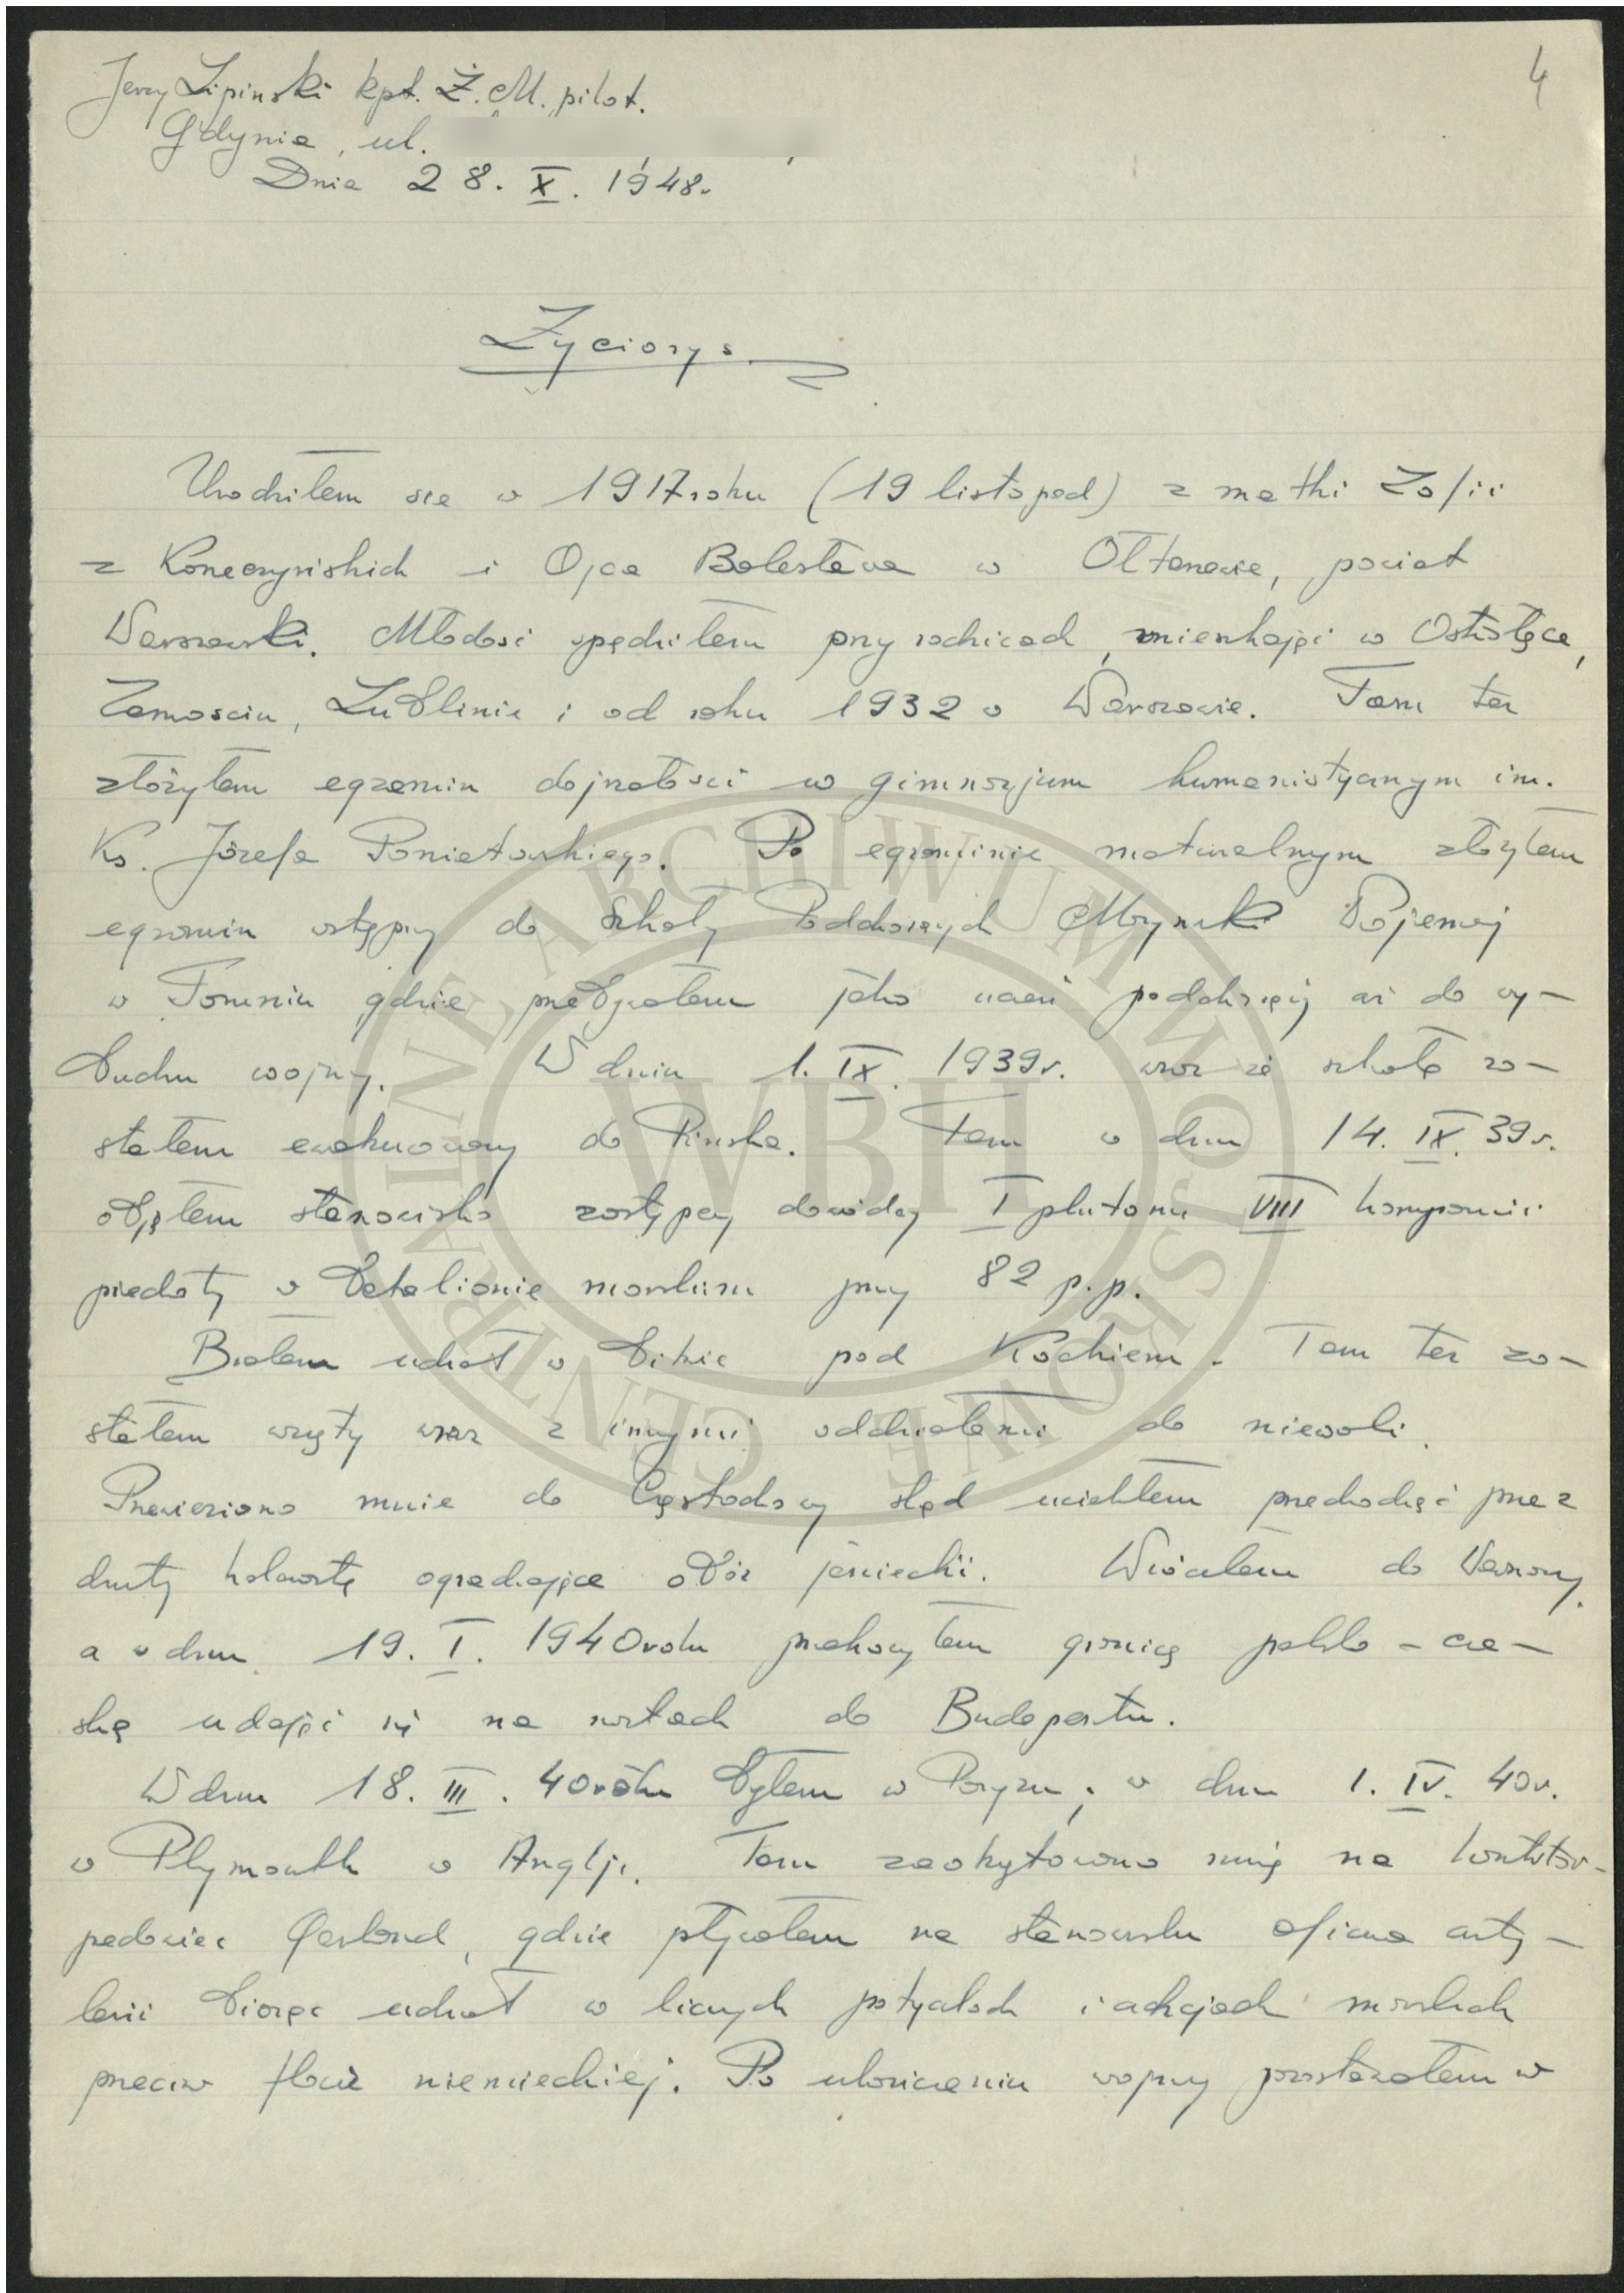 4
Jerzy Lipinski kpt. Ż. M. pilot.
Gdynia, ul.
Dnia 28. X. 1948.
Życiorys.
Urodziłem się w 1917 roku (19 listopad) z matki Zofii
z Koneczyńskich i Ojca Bolesława w Ołtarzewie, powiat
Warszawski. Młodość spędziłem przy rodzicach, mieszkając w Ostrołęce,
Zamościu, Lublinie i od roku 1932 w Warszawie. Tam też
złożyłem egzamin dojrzałości w gimnazjum humanistycznym im.
Ks. Józefa Poniatowskiego. Po egzaminie maturalnym złożyłem
egzamin wstępny do Szkoły Podchorążych Marynarki Wojennej
w Toruniu gdzie przebywałem jako uczeń podchorąży aż do wy-
buchu wojny. W dniu 1. IX. 1939r. wraz ze szkołą zo-
stałem ewakuowany do Pińska. Tam w dniu 14. IX. 39r.
objąłem stanowisko zastępcy dowódcy I plutonu VIII kompanii
piechoty w batalionie morskim przy 82 p.p.
Brałem udział w bitwie pod Kockiem. Tam też zo-
stałem wzięty wraz z innymi oddziałami do niewoli.
Przewieziono mnie do Częstochowy skąd uciekłem przechodząc przez
druty kolczaste ogradzające obóz jeniecki. Wróciłem do Warszawy,
a w dniu 19. I. 1940 roku przekroczyłem granicę polsko-cze-
ską udając się na nartach do Budapesztu.
W dniu 18. III. 40 roku byłem w Paryżu, w dniu 1. IV. 40r.
w Plymouth w Anglji. Tam zaokrętowano mnię na kontrtor-
pedowiec Garland, gdzie pływałem na stanowisku oficera arty-
lerii biorąc udział w licznych potyczkach i akcjach morskich
przeciw flocie niemieckiej. Po ukończeniu wojny pozostawałem w
CENTRALNE ARCHIWUM WOJSKOWE ©
WBH